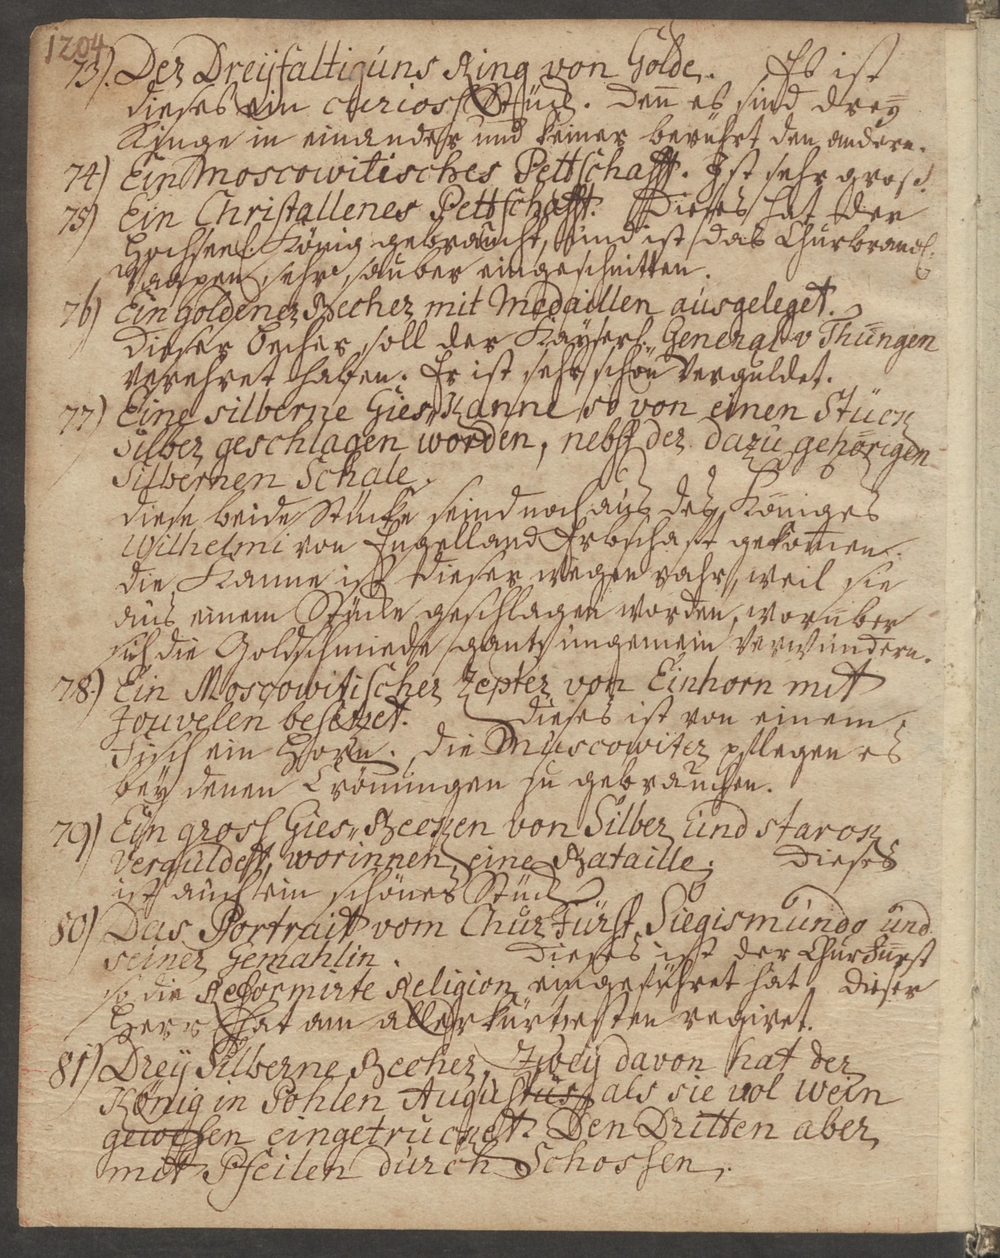 1204
73). Der Dreyfaltigüns Ring von Golde. Es ist
dieses ein curioss Stück. Denn es sind drey
Ringe in einander und keiner berührt den andern.
74) Ein Moscowitisches Pettschafft. Ist sehr gross.
75) Ein Christallenes Pettschafft. Dieses hat der
Hochseel. König gebraucht, und ist das Churbrandl.
Wapen sehr sauber eingeschnitten.
76) Ein goldener Becher mit Medaillen ausgeleget.
Dieser Becher soll der Kayserl. General v Thüngen
verehret haben. Er ist sehr schön verguldet.
77) Eine silberne Gies Kanne so von einen Stück
Silber geschlagen worden, nebst der dazu gehörigen
Silbernen Schale.
diese beide Stücke seind noch aus des Königes
Wilhelmi von Engelland Erbschafft gekomen.
die Kanne ist dieser wegen rahr, weil sie
aus einem Stücke geschlagen worden, worüber
sich die Goldschmiede gantz ungemein verwundern.
78.) Ein Moscowitischer Zepter von Einhorn mit
Jouvelen besetzet. Dieses ist von einem
Fisch ein Horn. Die Muscowiter pflegen es
bey denen Crönungen zu gebrauchen.
79) Ein gross Gies Becken von Silber und starck
verguldett, worinnen eine Bataille. Dieses
ist auch ein schönes Stück
80) Das Portrait vom Chur Fürst Siegismundo und
seiner Gemahlin. Dieses ist der Churfürst
so die Reformirte Religion eingeführet hat. Dieser
Herr hat am allerkürtzesten regiret.
81) Drey Silberne Becher, Zwey davon hat der
König in Pohlen Augustus als sie vol Wein
gewessen eingetrucket. Den Dritten aber
mit Pfeilen durch Schossen.